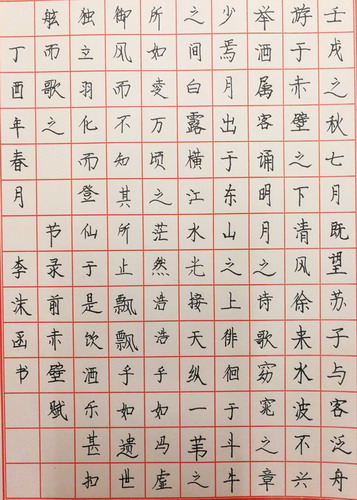 壬戌之秋七月既望苏子与客泛舟
游于赤壁之下清风徐来水波不兴
举酒属客诵明月之诗歌窈窕之章
少焉月出于东山之上徘徊于斗牛
之间白露横江水光接天纵一苇之
所如凌万顷之茫然浩浩乎如冯虚
御风而不知其所止飘飘乎如遗世
独立羽化而登仙于是饮酒乐甚扣
舷而歌之 节录前赤壁赋
丁酉年春月 李沫函书